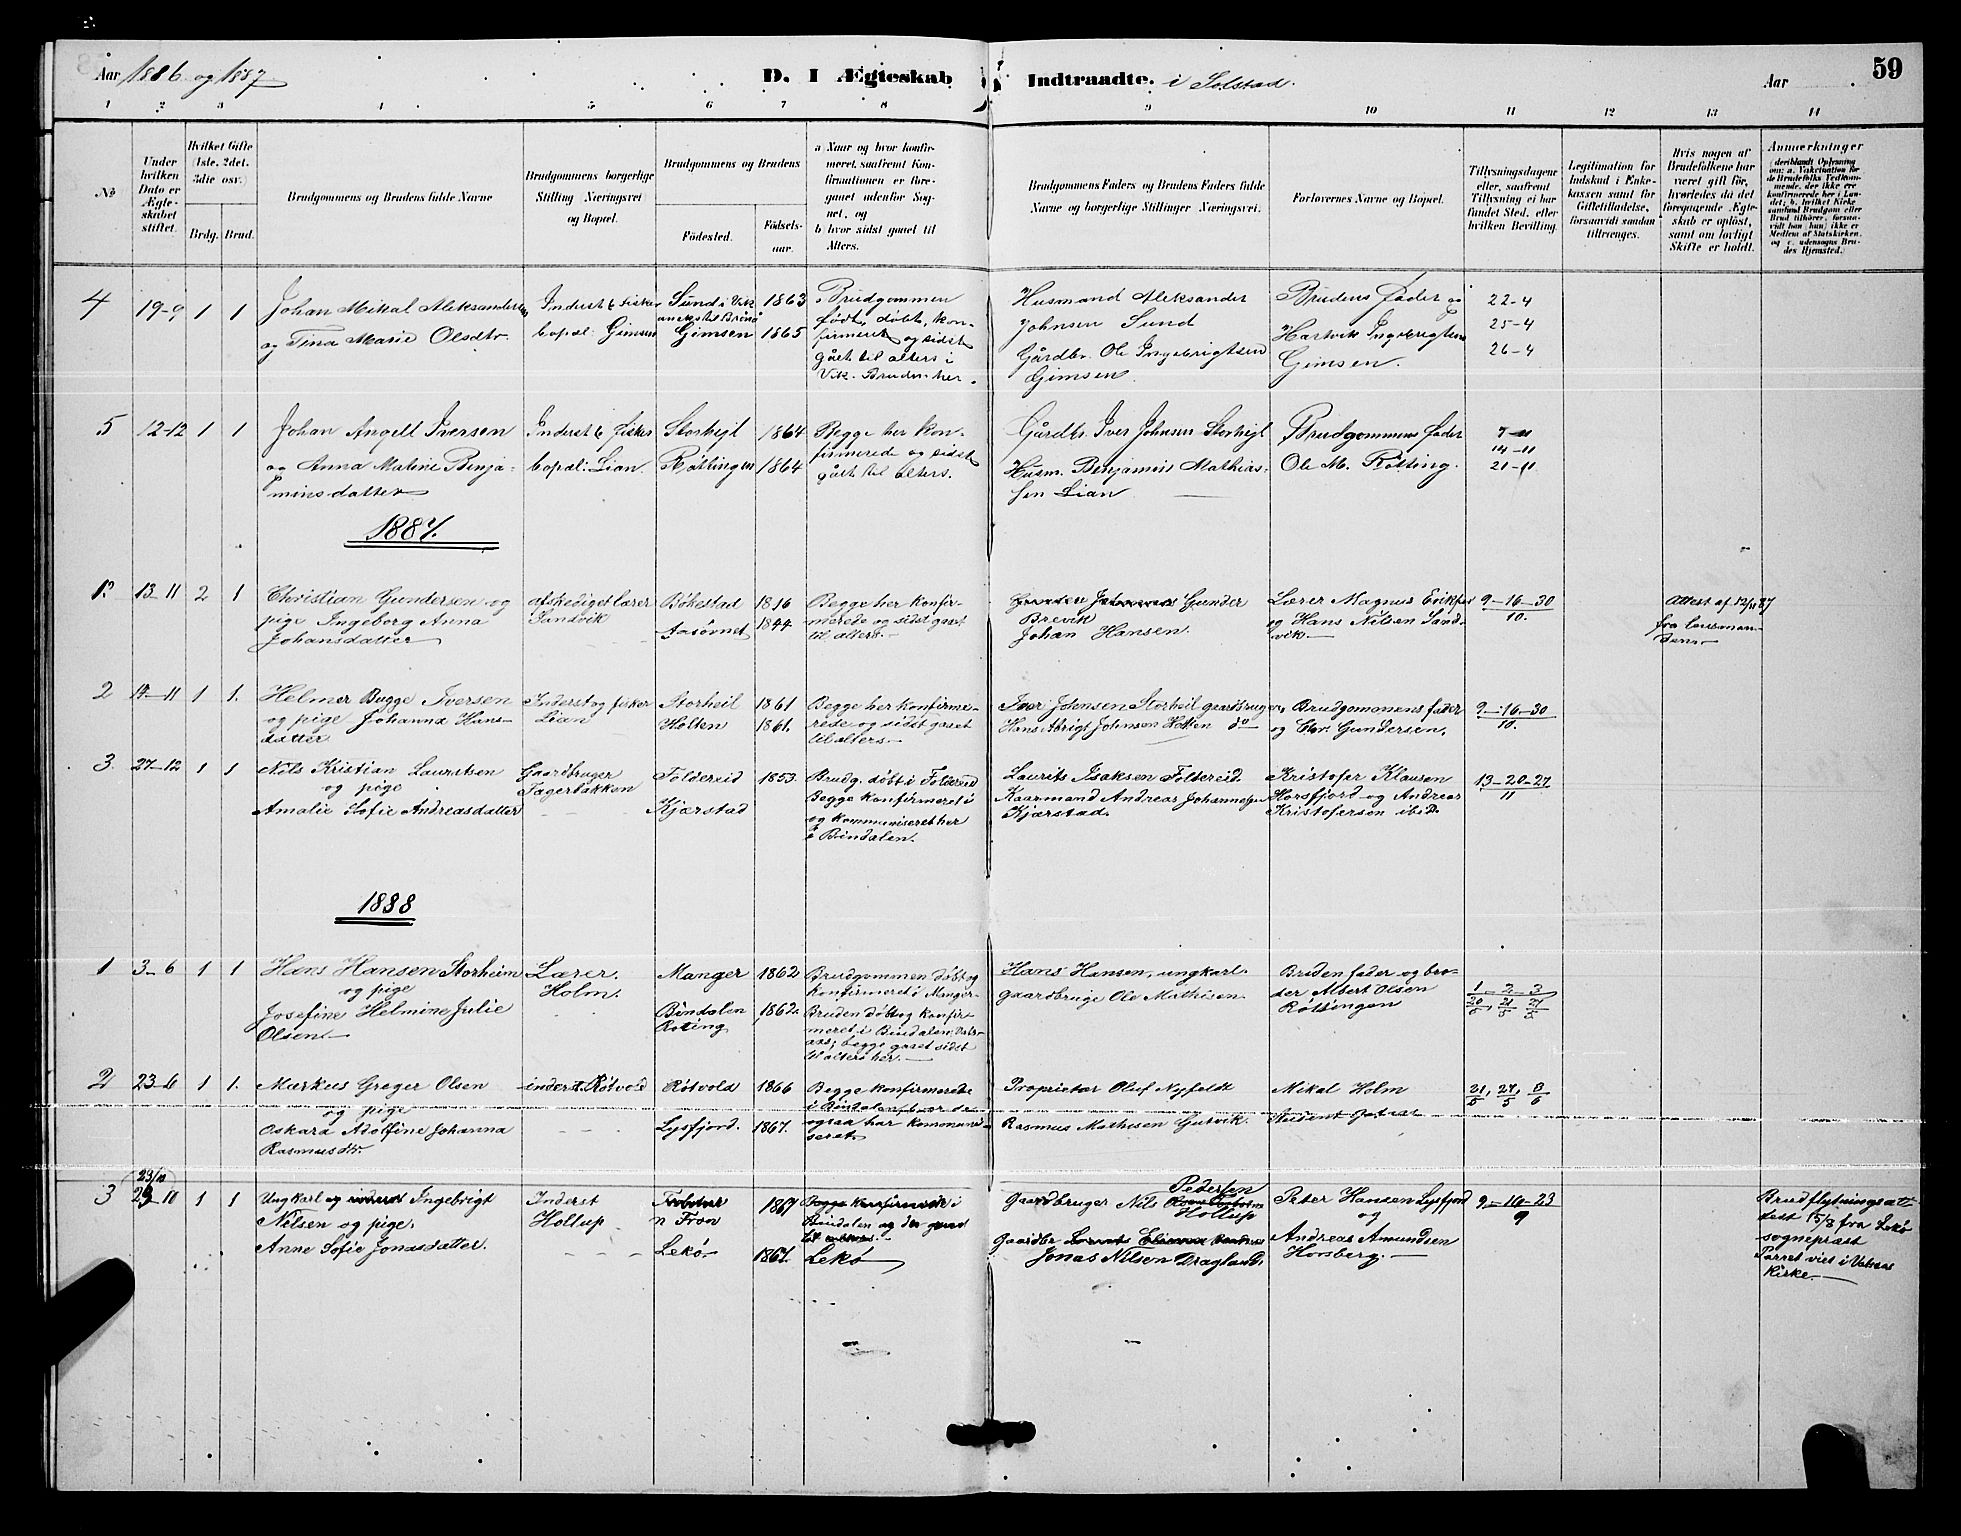 Aar 1886 og 1887
D. I Ægteskab Indtraadte. i Solstad.
Aar
59
1 2 3 4 5 6 7 8 9 10 11 12 13 14
No
Under hvilken Dato er Ægteskabet stiftet.
Hvilket Gifte (1ste, 2det, 3die osv.)
Brdg. Brud.
Brudgommens og Brudens fulde Navne
Brudgommens borgerlige Stilling Næringsvei og Bopæl.
Brudgommens og Brudens
Födested.
Födsels-aar.
a Naar og hvor konfirmeret, saafremt Konfirmationen er foregaaet udenfor Sognet, og
b hvor sidst gaaet til Alters.
Brudgommens Faders og Brudens Faders fulde Navne og borgerlige Stillinger Næringsvei.
Forlovernes Navne og Bopæl.
Tillysningsdagene eller, saafremt Tillysning ei har fundet Sted, efter hvilken Bevilling.
Legitimation for Indskud i Enkekassen samt for Giftetilladelse, forsaavidt saadan tiltrænges.
Hvis nogen af Brudefolkene har været gift før, hvorledes da det foregaaende Ægteskab er oplöst, samt om lovligt Skifte er holdt.
Anmærkninger
(deriblandt Oplysning om: a. Vakcination for de Brudefolks Vedkommende, der ikke ere konfirmerede her i Landet; b. hvilket Kirkesamfund Brudgom eller Brud tilhörer, forsaavidt han (hun) ikke er Medlem af Statskirken, og c. udensogns Brudes Hjemsted.
4 19-9 1 1
Johan Mikal Aleksandersen
og Tina Marie Olsdtr.
Inderst & fisker
bopæl: Gimsen
Sund i Vik
annex til Brönö
Gimsen
1863
1865
Brudgommen
født, døbt, kon-
firmeret og sidst
gået til alters i
Vik. Bruden her.
Husmand Aleksander
Johnsen Sund
Gårdbr. Ole Ingebrigtsen
Gimsen.
Brudens Fader og
Hartvik Ingebrigtsen
Gimsen.
22-4
25-4
26-4
5 12-12 1 1
Johan Angell Iversen
og Anna Matine Benja-
minsdatter
Inderst & fisker
bopæl: Lian.
Storhejl
Røttingen
1864
1864
Begge her kon-
firmerede og sidst
gået til alters.
Gårdbr. Iver Johnsen Storhejl
Husm. Benjamin Mathias-
sen Lian
Brudgommens fader
Ole M. Røtting.
7-11
14-11
21-11
1887.
1. 13-11 2 1
Christian Gundersen og
pige Ingeborg Anna
Johansdatter
afskediget lærer
Sandvik
Bøkestad
Aasövnet
1816
1844.
Begge her konfir-
merede og sidst gaaet
til alters.
Gunder
Brevik
Johan Hansen.
Lærer Magnus
og Hans Nilsen Sand-
vik.
9-16-30
10.
Attest af 12/11 87
fra lensman-
den
2 14-11 1 1.
Helmer Bugge Iversen
og pige Johanna Hans-
datter
Inderst og fisker
Lian
Storheil
Holten
1861
1861.
Begge her konfirme-
rede og sidst gaaet
til alters.
Iver Johnsen Storheil gaardbruger,
Hans Abrigt Johnsen Holten do
Brudgommens fader
og Chr. Gundersen.
9-16-30
10.
3. 27-12 1 1
Nils Kristian Lauritsen
og pige
Amalie Sofie Andreasdatter
Gaardbruger
Fagerbakken
Foldereid
Kjærstad
1853.
Brudg. döbt i Foldereid
Begge konfirmeret i
og kommuniseret her
i Bindalen.
Laurits Isaksen Foltereid.
Kaarmand Andreas Johannesen
Kjærstad.
Kristofer Klausen
Horsfjord og Andreas
Kristofersen ibid.
13-20-27
11
1888
1 3-6 1 1
Hans Hansen Storheim
og pige
Josefine Helmine Julie
Olsen.
Lærer.
Holm.
Manger
Bindalen
Röting
1862
1862.
Brudgommen döbt og
konfirmeret i Manger.
Bruden döbt og konfir-
meret i Bindalen
begge gaaet sidst
til alters her.
Hans Hansen, ungkarl.
gaardbruge Ole Mathisen
Bruden fader og bro-
der Albert Olsen
Röttingen
1 - 2 - 3
20/5, 21/5 27/5
2 23-6 1 1.
Markus Greger Olsen
og pige
Oskara Adolfine Johanna
Rasmusdtr.
inderst. Rötvold
Rötvold
Lysfjord.
1866
1867.
Begge konfirmerede
i Bindalen, hvor de
ogsaa har kommuni-
seret
Proprietær Oluf Nyfeldt
Rasmus Mathisen Gutvik.
Mikal Holm
Student
21/5, 27/5, 3/6
3 23/10 23-10 1 1
Ungkarl og inderst Ingebrigt
Nilsen og pige,
Anne Sofie Jonasdatter.
Inderst
Hollup
n Froan
Lekö
1867
1867.
Begge konfirmerede i
Bindalen og der gaaet
til alters.
Lekö
Pedersen
Gaardbruger Nils
Hollup
Gaardbr
Jonas Nilsen Dragland
Peter Hansen Lysfjord
og
Andreas Amundsen
Horsberg.
9-16-23
9
Brudflytningsatt
test 15/8 fra Lekö
sognepræst
Parret viet i Vatsaas
Kirke.